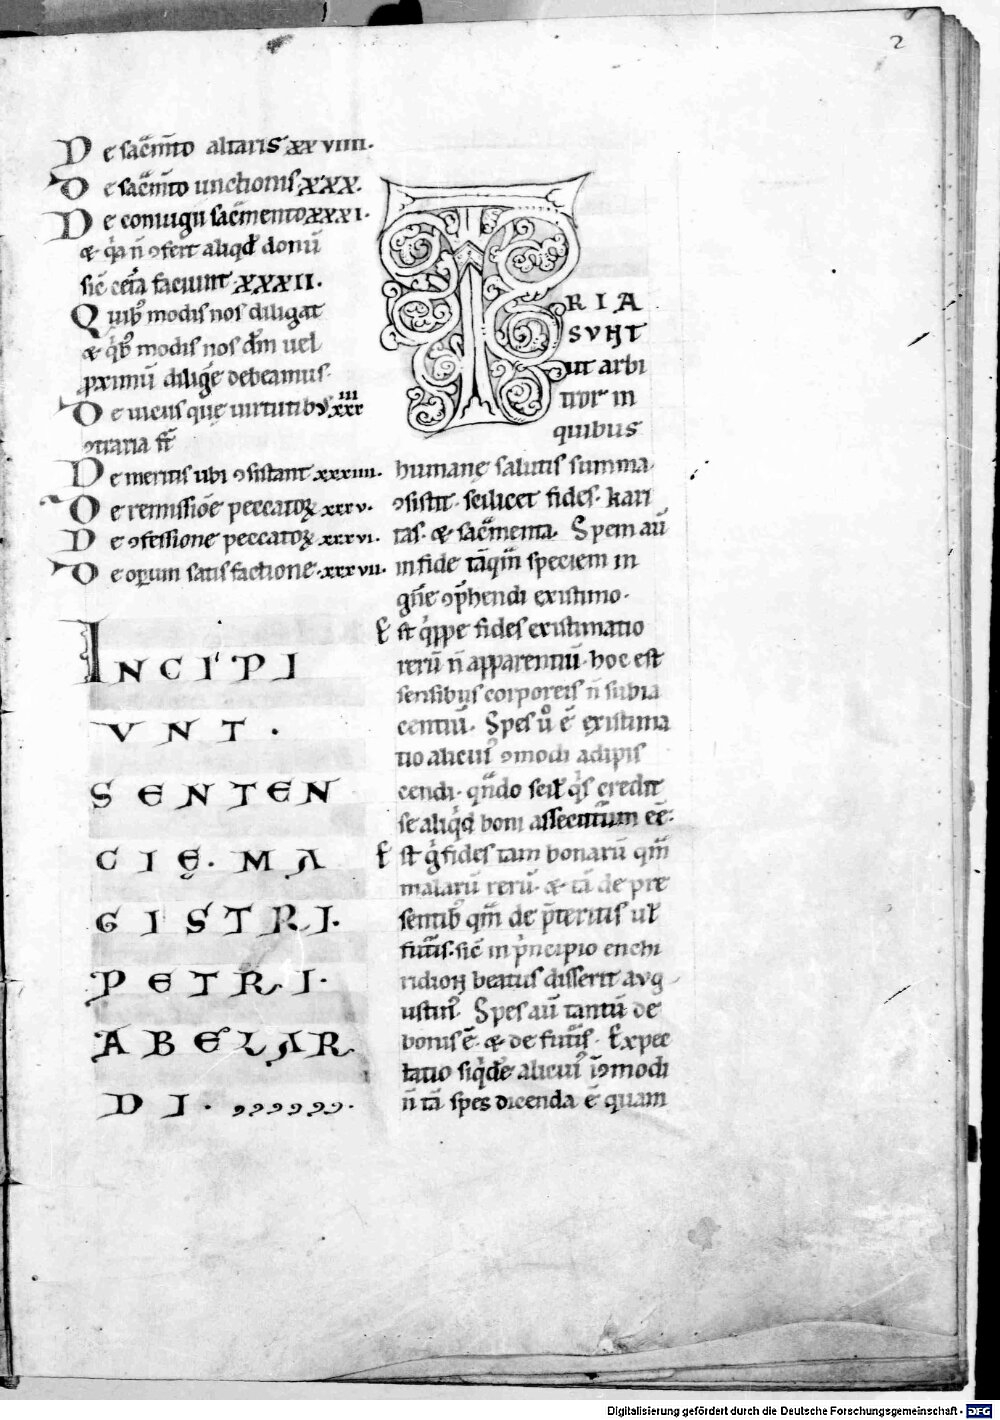 2
De sac̄m̄to altaris xxviiii.
De sac̄m̄to unctionis xxx.
De coniugii sac̄mento xxxi.
& q̄a n̄ ꝯfert aliqd̄ donū
sic̄ cet̄a faciunt xxxii.
Quib; modis nos diligat
& q̄b; modis nos d̄m uel
ꝓximū diliḡe debeamus.
De uiciis quę uirtutib; xxxiii
ꝯtraria s̄t
De meritis ubi ꝯsistant xxxiiii.
De remissiōe peccatoꝝ xxxv.
De ꝯfessione peccatoꝝ xxxvi.
De oꝑum satisfactione. xxxvii.
INCIPI
VNT.
SENTEN
CIĘ. MA
GISTRI.
PETRI.
ABELAR
DI.
TRIA
SVNT
ut arbi
tror in
quibus
humanę salutis summa
ꝯsistit. scilicet fides. kari
tas. & sac̄menta. Spem aū
in fide tāqm̄ speciem in
gn̄e ꝯp̄hendi existimo.
Est q̄ppe fides existimatio
rerū n̄ apparentiū. hoc est
sensibus corporeis n̄ subia
centiū. Spes ů ē existima
tio alicui᾽ ꝯmodi adipis
cendi. qn̄do scil̄ q̄s credit
se aliq̄d boni assecuturum eē.
Est g̊ fides tam bonarū qm̄
malarū rerū. & tā de pre
sentib; qm̄ de p̄teritis ul̄
fut̄is. sic̄ in p̄ncipio enchi
ridion beatus disserit aug
ustin᾽. Spes aū tantū de
bonis ē. & de fut̄is. Expec
tatio siq̄de alicui᾽ īꝯmodi
n̄ tā spes dicenda ē quam
Digitalisierung gefördert durch die Deutsche Forschungsgemeinschaft - DFG